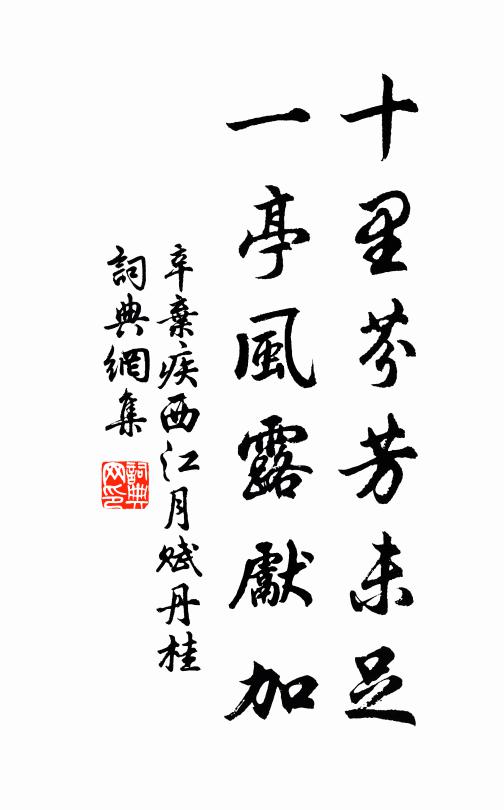 十里芬芳未足
一亭風露獻加
辛棄疾西江月賦丹桂
詞典網集
詞典网印